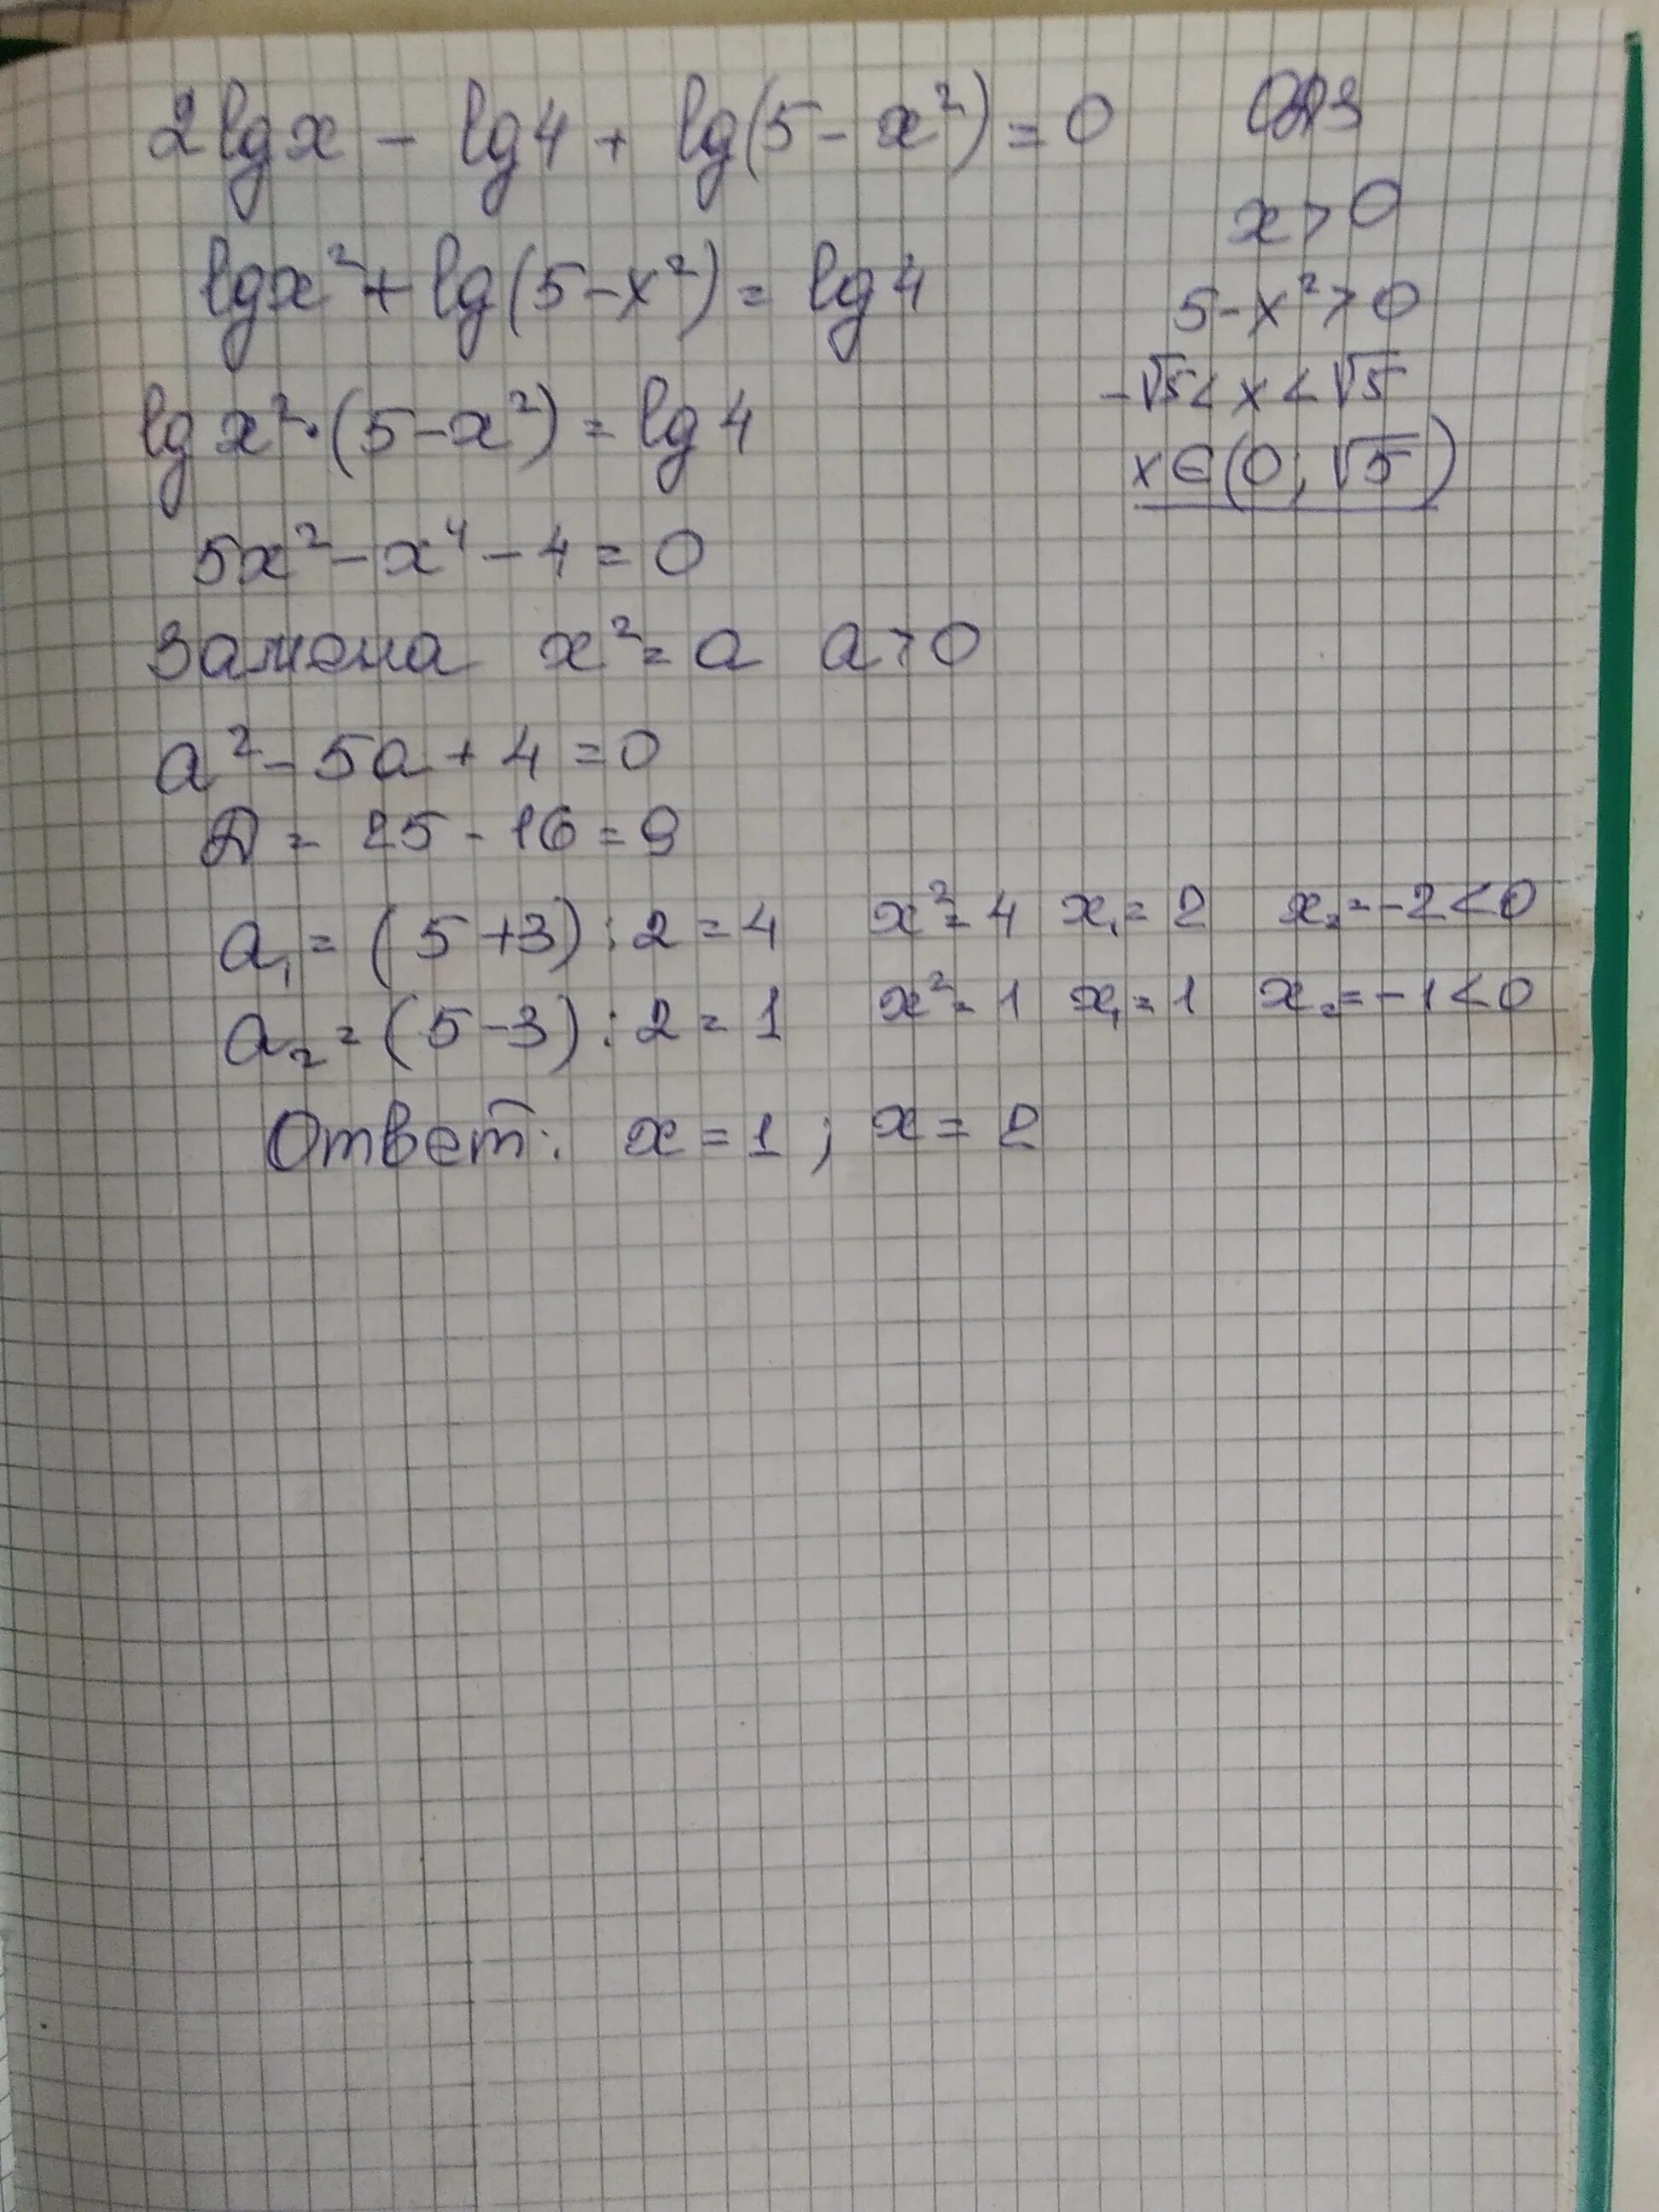 2lgx - lg4 + lg(5 - x²) = 0
ОДЗ
x > 0
5 - x² > 0
-√5 < x < √5
x ∈ (0; √5)
lgx² + lg(5 - x²) = lg4
lg x² · (5 - x²) = lg 4
5x² - x⁴ - 4 = 0
Замена x² = a a > 0
a² - 5a + 4 = 0
D = 25 - 16 = 9
a₁ = (5 + 3) : 2 = 4 x² = 4 x₁ = 2 x₂ = -2 < 0
a₂ = (5 - 3) : 2 = 1 x² = 1 x₁ = 1 x₂ = -1 < 0
Ответ: x = 1 ; x = 2